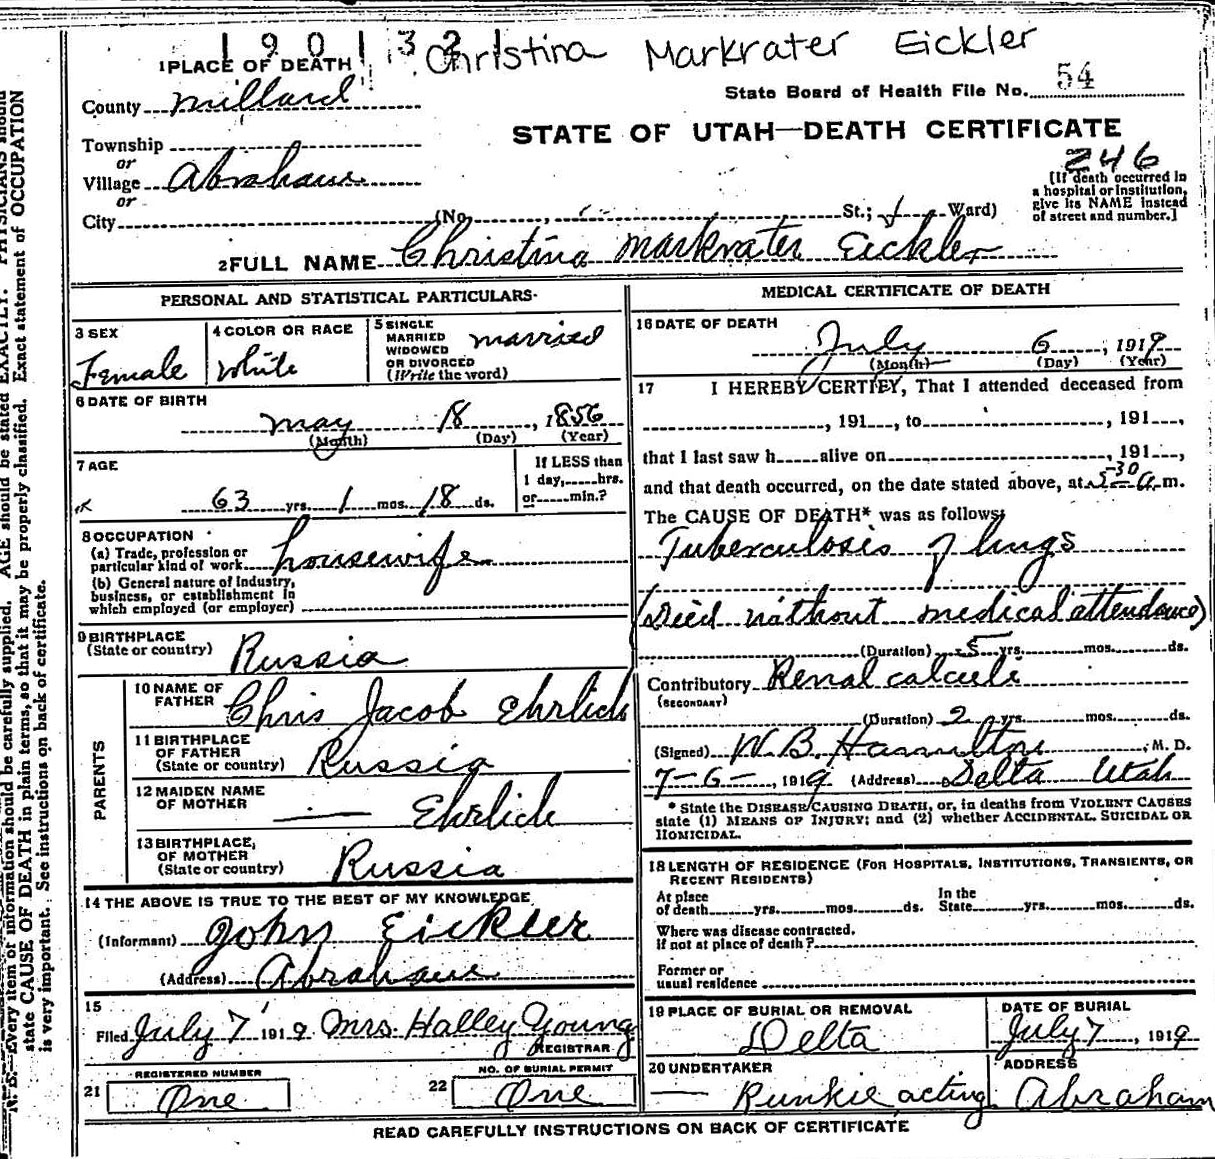 1901321 Christina Markrater Eickler
1 PLACE OF DEATH
County Millard
State Board of Health File No. 54
Township
or
Village Abraham
or
City
STATE OF UTAH—DEATH CERTIFICATE
246
[If death occurred in
a hospital or institution,
give its NAME instead
of street and number.]
(No. , St.; Ward)
2 FULL NAME Christina Markrater Eickler
PERSONAL AND STATISTICAL PARTICULARS
3 SEX
Female
4 COLOR OR RACE
White
5 SINGLE
MARRIED
WIDOWED
OR DIVORCED
(Write the word)
married
6 DATE OF BIRTH
May 18, 1856
(Month) (Day) (Year)
7 AGE
63 yrs. 1 mos. 18 ds.
If LESS than
1 day, hrs.
or min.?
8 OCCUPATION
(a) Trade, profession or
particular kind of work housewife
(b) General nature of industry,
business, or establishment in
which employed (or employer)
9 BIRTHPLACE
(State or country) Russia
PARENTS
10 NAME OF
FATHER Chris Jacob Ehrlich
11 BIRTHPLACE
OF FATHER
(State or country) Russia
12 MAIDEN NAME
OF MOTHER — Ehrlich
13 BIRTHPLACE,
OF MOTHER
(State or country) Russia
14 THE ABOVE IS TRUE TO THE BEST OF MY KNOWLEDGE
(Informant) John Eickler
(Address) Abraham
15
Filed July 7 1919 Mrs. Halley Young
REGISTRAR
REGISTERED NUMBER
21 One
NO. OF BURIAL PERMIT
22 One
MEDICAL CERTIFICATE OF DEATH
16 DATE OF DEATH
July 6, 1919
(Month) (Day) (Year)
17 I HEREBY CERTIFY, That I attended deceased from
, 191 , to , 191 ,
that I last saw h alive on , 191 ,
and that death occurred, on the date stated above, at 5-30 a. m.
The CAUSE OF DEATH* was as follows:
Tuberculosis of lungs
(Died without medical attendance)
(Duration) 5 yrs. mos. ds.
Contributory Renal calculi
(SECONDARY)
(Duration) 2 yrs. mos. ds.
(Signed) W. B. Hamilton, M. D.
7-6-, 1919 (Address) Delta Utah
* State the DISEASE CAUSING DEATH, or, in deaths from VIOLENT CAUSES
state (1) MEANS OF INJURY; and (2) whether ACCIDENTAL, SUICIDAL OR
HOMICIDAL.
18 LENGTH OF RESIDENCE (FOR HOSPITALS, INSTITUTIONS, TRANSIENTS, OR
RECENT RESIDENTS)
At place
of death yrs. mos. ds.
In the
State yrs. mos. ds.
Where was disease contracted,
if not at place of death?
Former or
usual residence
19 PLACE OF BURIAL OR REMOVAL
Delta
DATE OF BURIAL
July 7, 1919
20 UNDERTAKER
— Runkie acting
ADDRESS
Abraham
READ CAREFULLY INSTRUCTIONS ON BACK OF CERTIFICATE
N. B.—Every item of information should be carefully supplied. AGE should be stated EXACTLY. PHYSICIANS should
state CAUSE OF DEATH in plain terms, so that it may be properly classified. Exact statement of OCCUPATION
is very important. See instructions on back of certificate.